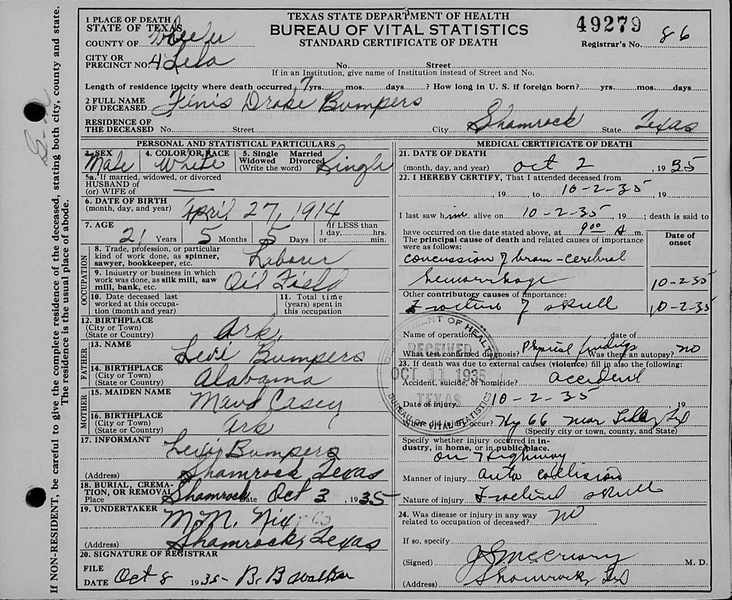 TEXAS STATE DEPARTMENT OF HEALTH
BUREAU OF VITAL STATISTICS
STANDARD CERTIFICATE OF DEATH
49279
Registrar's No. 86
1 PLACE OF DEATH
STATE OF TEXAS
COUNTY OF Wheeler
CITY OR
PRECINCT NO. 4 Lela No. Street
If in an Institution, give name of Institution instead of Street and No.
Length of residence in city where death occurred 7 yrs. mos. days. ? How long in U. S. if foreign born? yrs. mos. days
2 FULL NAME
OF DECEASED Finis Drake Bumpers
RESIDENCE OF
THE DECEASED No. Street City Shamrock State Texas
PERSONAL AND STATISTICAL PARTICULARS
3. SEX 4. COLOR OR RACE 5. Single Married
Widowed Divorced
(Write the word)
Male White Single
5a. If married, widowed, or divorced
HUSBAND OF
(or) WIFE OF —
6. DATE OF BIRTH
(month, day, and year) April 27, 1914
7. AGE
21 Years 5 Months 5 Days
If LESS than
1 day, hrs.
or min.
OCCUPATION
8. Trade, profession, or particular
kind of work done, as spinner,
sawyer, bookkeeper, etc. Laborer
9. Industry or business in which
work was done, as silk mill, saw
mill, bank, etc. Oil Field
10. Date deceased last
worked at this occupa-
tion (month and year)
11. Total time
(years) spent in
this occupation
12. BIRTHPLACE
(City or Town)
(State or Country) Ark.
FATHER
13. NAME Levi Bumpers
14. BIRTHPLACE
(City or Town)
(State or Country) Alabama
MOTHER
15. MAIDEN NAME Maud Casey
16. BIRTHPLACE
(City or Town)
(State or Country) Ark
17. INFORMANT Levi Bumpers
(Address) Shamrock, Texas
18. BURIAL, CREMA-
TION, OR REMOVAL
Place Shamrock Date Oct 3, 1935
19. UNDERTAKER M.M. Nix Co
(Address) Shamrock, Texas
20. SIGNATURE OF REGISTRAR
FILE
DATE Oct 8 1935- B.B. Walker
MEDICAL CERTIFICATE OF DEATH
21. DATE OF DEATH
(month, day, and year) Oct 2, 1935
22. I HEREBY CERTIFY, That I attended deceased from
, 19 , to 10-2-35, 19
I last saw him alive on 10-2-35, 19 ; death is said to
have occurred on the date stated above, at 9 00 A m.
The principal cause of death and related causes of importance
were as follows:
Date of
onset
concussion of brain-cerebral
hemorrhage 10-2-35
Other contributory causes of importance:
Fracture of skull 10-2-35
Name of operation date of
What test confirmed diagnosis? Physical findings Was there an autopsy? no
23. If death was due to external causes (violence) fill in also the following:
Accident, suicide, or homicide? accident
Date of injury 10-2-35 19
Where did injury occur? Hy 66 near Lela, Tex
(Specify city or town, county, and State)
Specify whether injury occurred in in-
dustry, in home, or in public place.
on Highway
Manner of injury auto collision
Nature of injury Fractured skull
24. Was disease or injury in any way
related to occupation of deceased? no
If so, specify
(Signed) M. D.
(Address) Shamrock, Tex
RECEIVED
OCT 11 1935
TEXAS
BUREAU OF VITAL STATISTICS
If NON-RESIDENT, be careful to give the complete residence of the deceased, stating both city, county and state.
The residence is the usual place of abode.